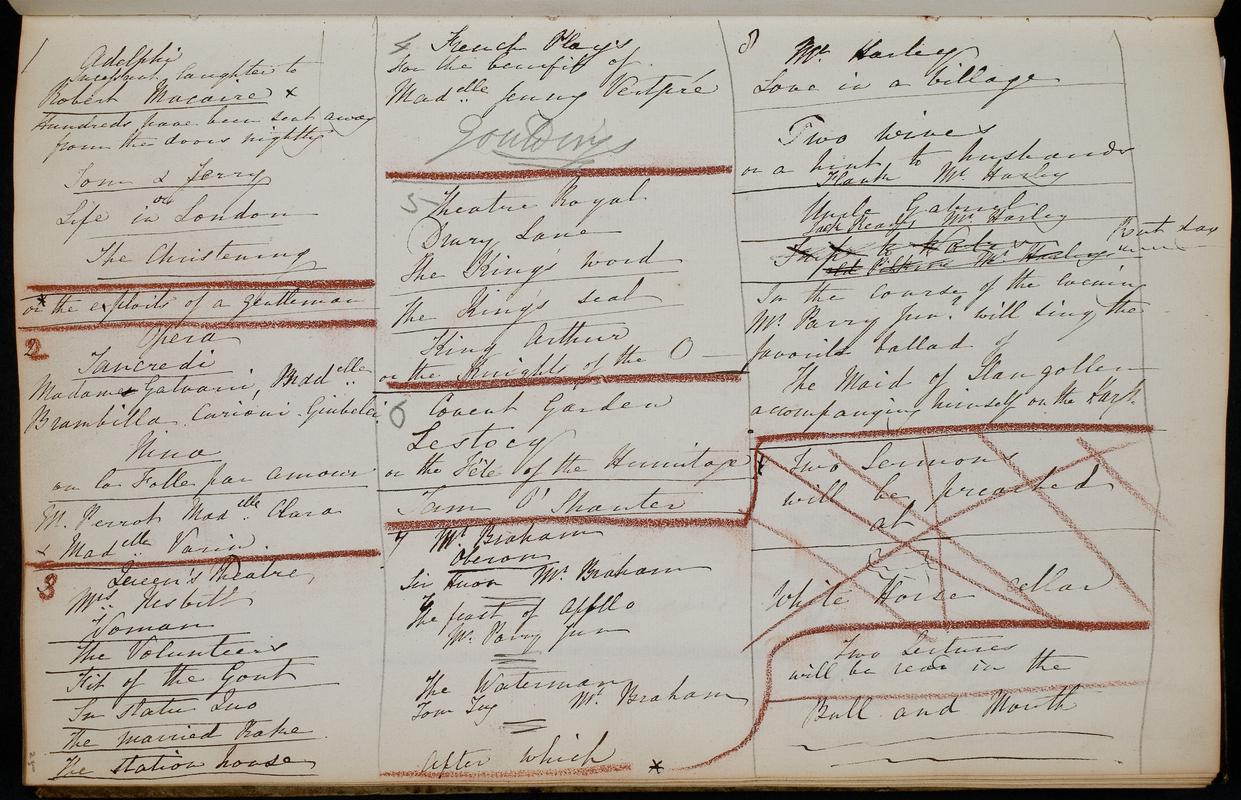 1
Adelphi
Successful laughter to
Robert Macaire x
Hundreds have been sent away
from the doors nightly
Tom & Jerry
or
Life in London
The Christening
* or the exploits of a gentleman
2
Opera
Tancredi
Madame Galvani, Madd elle
Brambilla. Curioni. Giubelei
Nina
ou la Folle par amour
Mr. Perrot Mad elle Clara
& Mad elle Varin.
3
Queen's Theatre,
Mrs. Nesbitt
Woman
The Volunteers
Fit of the Gout
In statu Quo
The Married Rake
The station house
4 French Plays
For the benefit of
Mad elle Jenny Vertpré
Goulding's
5 Theatre Royal
Drury Lane
The King's word
The King's seal
King Arthur
or the Knights of the O
6 Covent Garden
Lestocq
or the Fête of the Hermitage
Tam O' Shanter
7 Mr. Braham
Oberon
Sir Huon Mr. Braham
The feast of Apollo
Mr. Parry Jun
The Waterman
Tom Tug Mr. Braham
After which *
8 Mr. Harley
Love in a village
Two wives
or a hint to husbands
Flank Mr. Harley
Uncle Gabriel
Jack Ready Mr. Harley
Mr. Harley
But say
In the course of the evening
Mr. Parry Junr. will sing the
favorite ballad of
The Maid of Llangollen
accompanying himself on the Harp.
Two Sermons
will be preached
at
White Horse cellar
Two Lectures
will be read in the
Bull and Mouth